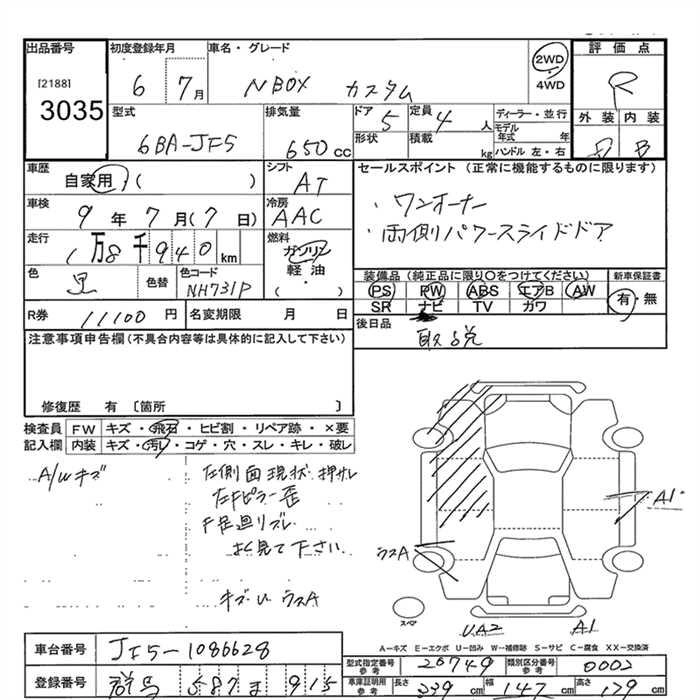 出品番号 初度登録年月 車名・グレード 評価点
[2188] 3035 6 7月 NBOX カスタム 2WD 4WD R
型式 排気量 ドア 定員 ディーラー・並行 外装 内装
6BA-JF5 650cc 5 4人 モデル年式 年 B
形状 積載 kg ハンドル 左・右
車歴 シフト セールスポイント（正常に機能するものに限ります）
自家用（ ） AT
車検 冷房 ・ワンオーナー
9年7月（7日） AAC ・両側パワースライドドア
走行 燃料
1万8千940km ガソリン 軽油 ・（ ）
色 色替 色コード 装備品（純正品に限り〇をつけてください） 新車保証書
黒 NH731P PS PW ABS エアB AW 有・無
SR ナビ TV カワ
R券 11100円 名変期限 月 日 後日品
取説
注意事項申告欄（不具合内容等は具体的に記入して下さい）
修復歴 有〔箇所 〕
検査員 FW キズ・飛石・ヒビ割・リペア跡・×要
記入欄 内装 キズ・汚レ・コゲ・穴・スレ・キレ・破レ
A/Wキズ 左側面現状 押サレ
左Fピラー歪
F足廻リズレ
よく見て下さい
キズU ウスA
A1
ウスA
スペア
UA2 A1
A－キズ E－エクボ U－凹み W－補修跡 S－サビ C－腐食 XX－交換済
車台番号 JF5-1086628
型式指定番号 参考 20749 類別区分番号 参考 0002
登録番号 群馬 587 ま 915
車庫証明用 参考 長さ 339cm 幅 147cm 高さ 179cm